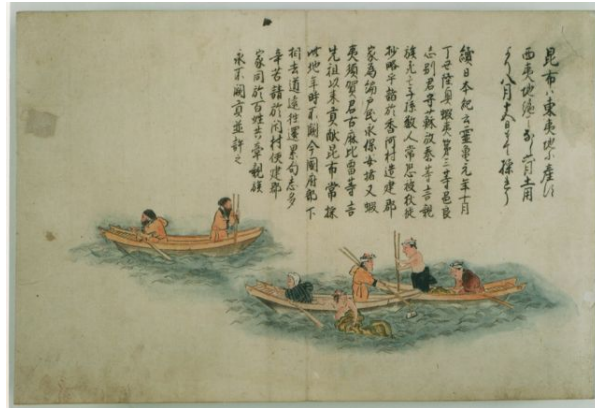 昆布ハ東夷地に産す
西夷地なし六月土用
より八月十五日まて採るなり
續日本紀云靈亀元年十月
丁丑陸奥蝦夷第三等邑良
志別君宇蘇弥奈等言親
族死亡子孫数人常恐被狄徒
抄略乎請於香河村造建郡
家為編戸民永保安堵又蝦
夷須賀君古麻比留等言
先祖以来貢献昆布常採
此地年時不闕今國府郭下
相去道遠往還累旬甚多
辛苦請於閇村便建郡
家同於百姓共率親族
永不闕貢並許之